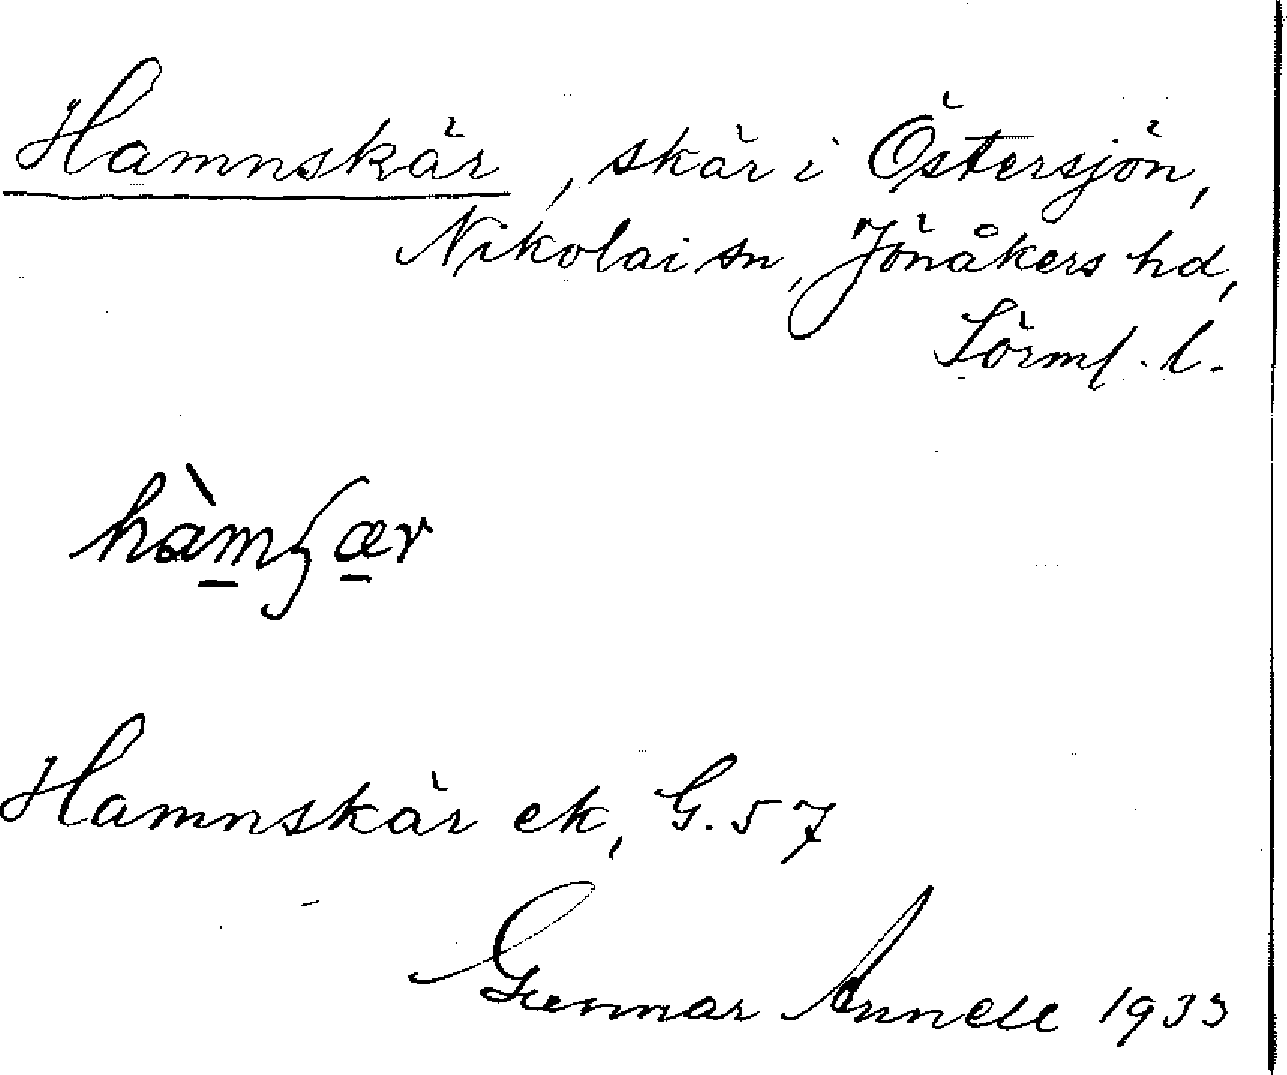 Hamnskär, skär i Östersjön,
Nikolai sn, Jönåkers hd,
Sörml. l.
hàmʃær
Hamnskär ek, G. 57
Gunnar Annell 1933